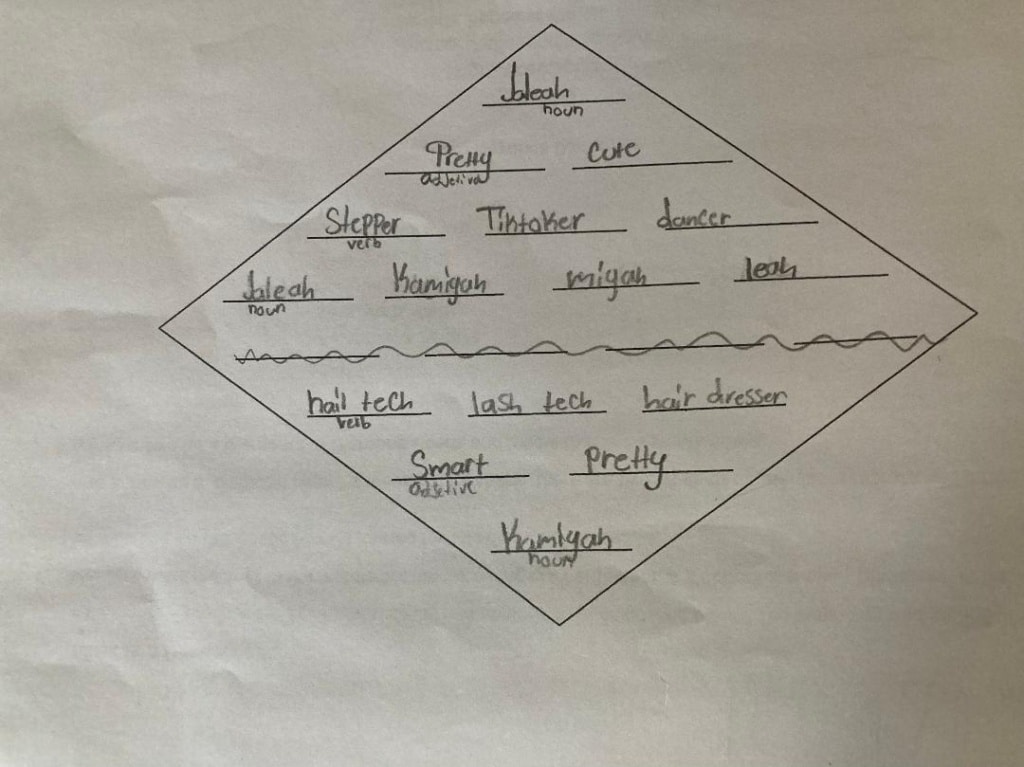 Jaleah
noun
Pretty cute
adjetive
Stepper Tiktoker dancer
verb
Jaleah Kamiyah miyah leah
noun
hail tech lash tech hair dresser
verb
Smart pretty
adjetive
Kamiyah
noun